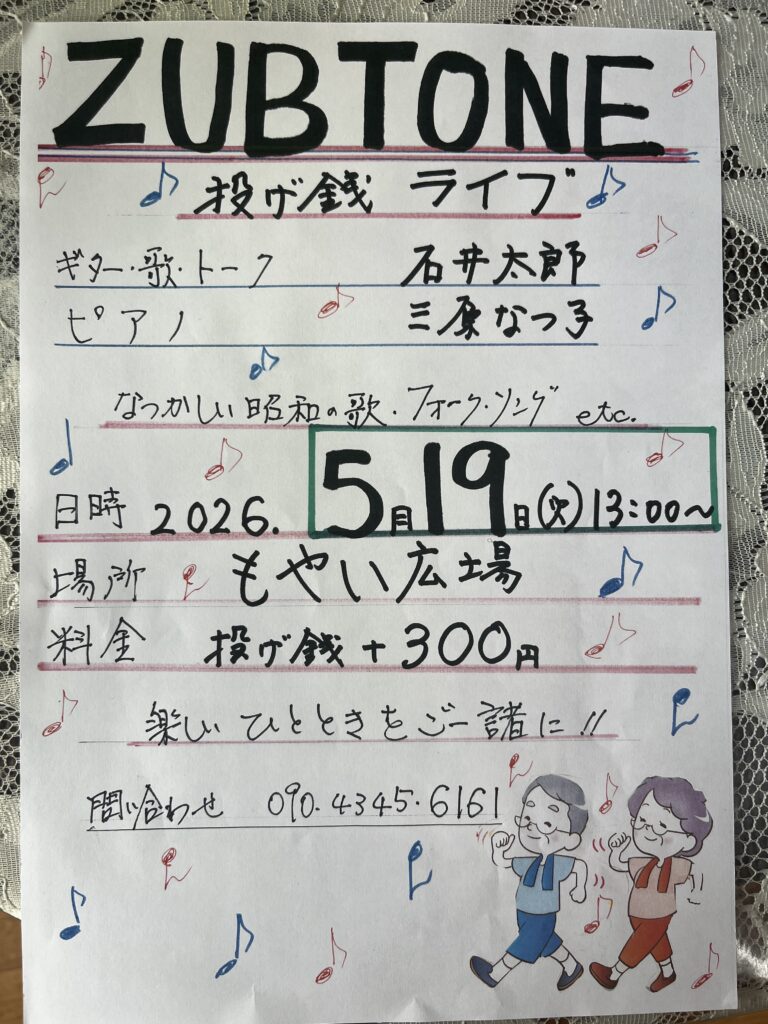 ZUBTONE
投げ銭 ライブ
ギター・歌・トーク 石井太郎
ピアノ 三原なつ子
なつかしい昭和の歌・フォーク・ソング etc.
日時 2026. 5月19日(火)13:00〜
場所 もやい広場
料金 投げ銭+300円
楽しいひとときをご一諸に!!
問い合わせ 090.4345.6161